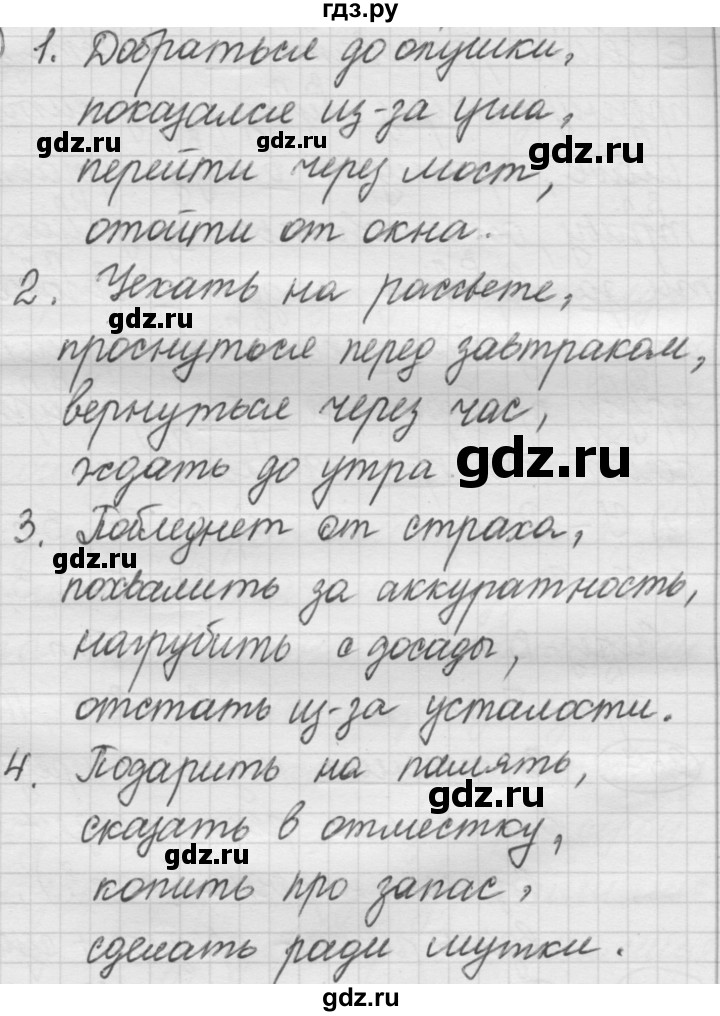 гдз.ру
1. Добраться до опушки,
показался из-за угла,
gdz.ru
gdz.ru
gdz.ru
перейти через мост,
отойти от окна.
2. Уехать на рассвете,
gdz.ru
проснуться перед завтраком,
вернуться через час,
ждать до утра
gdz.ru
3. Побледнет от страха,
gdz.ru
похвалить за аккуратность,
нагрубить с досады,
отстать из-за усталости.
4. Подарить на память,
gdz.ru
сказать в отместку,
gdz.ru
копить про запас,
сделать ради шутки.
gdz.ru